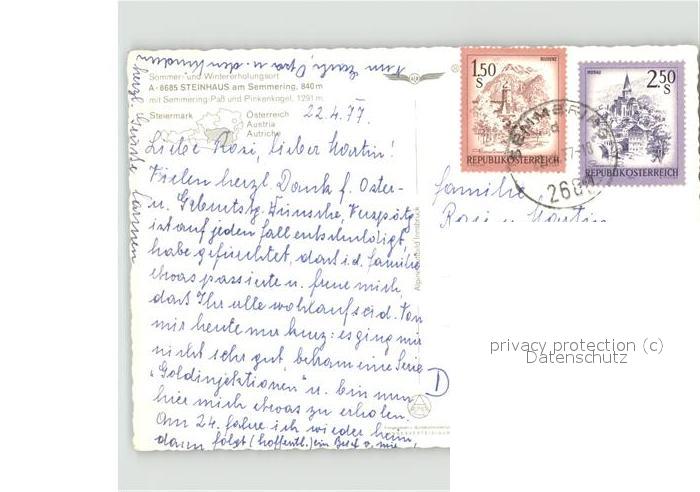 Sommer- und Wintererholungsort
A-8685 STEINHAUS am Semmering, 840 m
mit Semmering-Paß und Pinkenkogel, 1291 m
Steiermark
Österreich
Austria
Autriche
22.4.77.
Liebe Rosi, lieber Martin!
Vielen herzl. Dank f. Oster-
u. Geburtstg. Wünsche, Verspätg.
ist auf jeden fall entschuldigt,
habe gefürchtet, dass i.d. familie
etwas passierte u. freue mich,
dass Ihr alle wohlauf seid. Von
mir heute nur kurz: es ging mir
nicht sehr gut, bekam eine Serie
"Goldinjektionen" u. bin nun
hier mich etwas zu erholen.
Am 24. fahre ich wieder heim,
dann folgt (hoffentl.) ein Brief v. mir,
herzl. Grüsse
1.50
S
BLUDENZ
REPUBLIK ÖSTERREICH
2.50
S
MURAU
REPUBLIK ÖSTERREICH
SEMMERING
familie
Rosi u. Martin
Alpine Luftbild Innsbruck
privacy protection (c)
Datenschutz